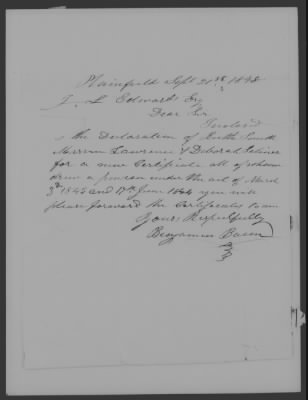 Plainfield Sept 21st 1848
J. L. Edwards Esq
Dear Sir
Inclosed
is the Declaration of Ruth Smith
Lawrence & Deborah
for a new Certificate all of whom
drew a pension under the act of March
3rd 1843 and 17th June 1844 you will
please forward the Certificates to me
Yours Respectfully
Benjamin Bacon